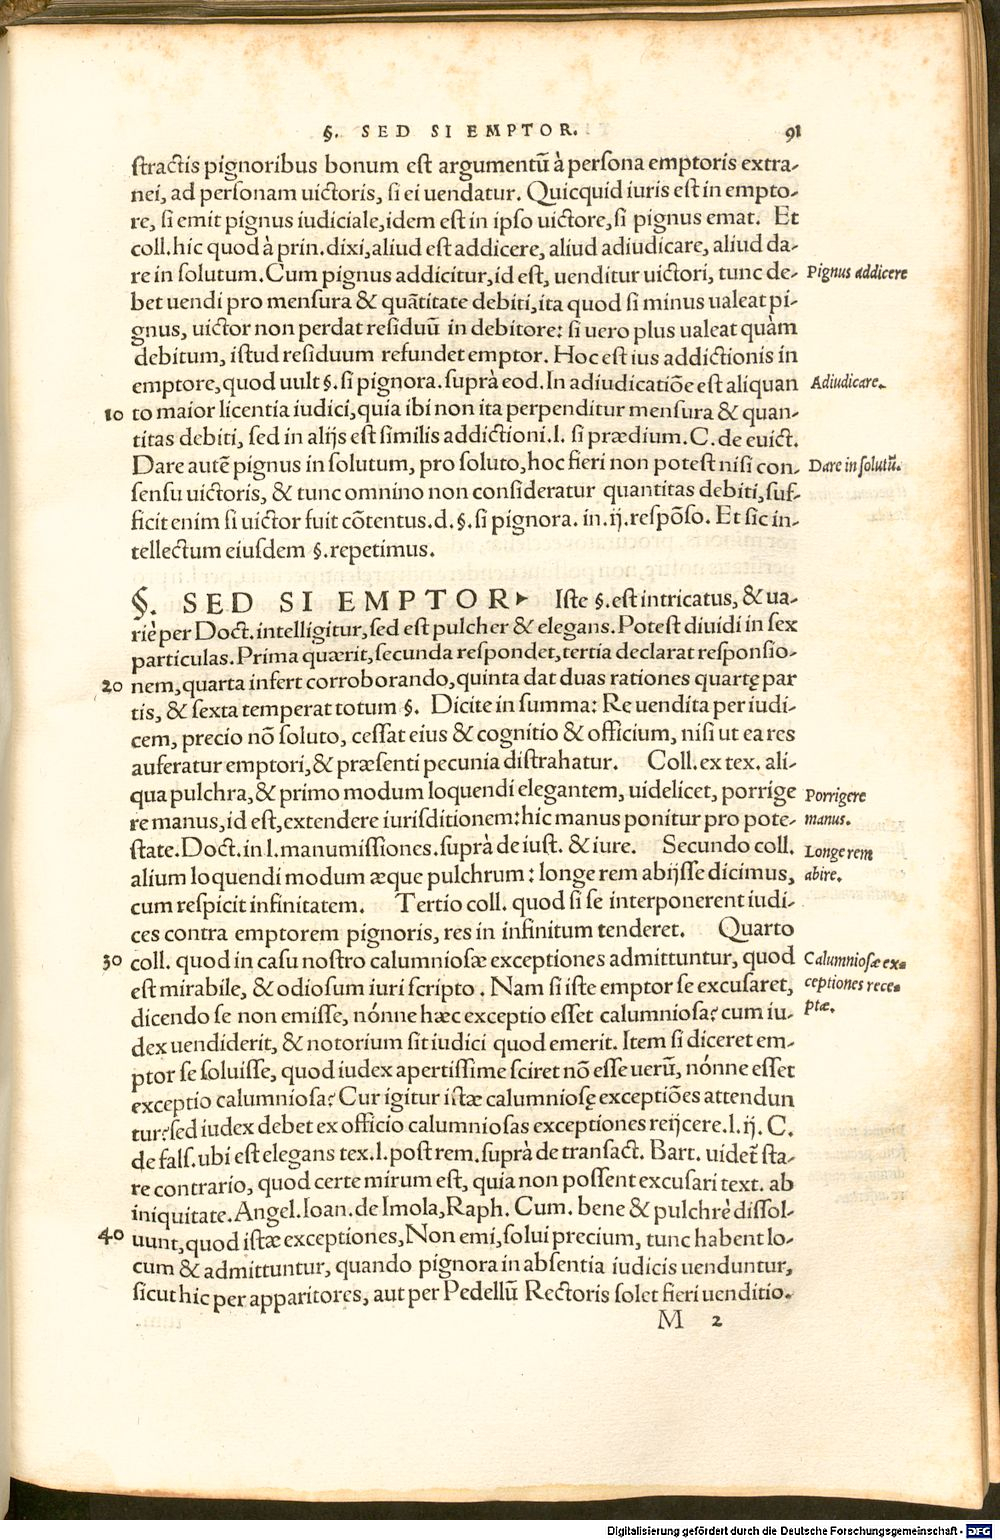 §. SED SI EMPTOR. 91
stractis pignoribus bonum est argumentū à persona emptoris extra-
nei, ad personam uictoris, si ei uendatur. Quicquid iuris est in empto-
re, si emit pignus iudiciale, idem est in ipso uictore, si pignus emat. Et
coll. hic quod à prin. dixi, aliud est addicere, aliud adiudicare, aliud da-
re in solutum. Cum pignus addicitur, id est, uenditur uictori, tunc de- Pignus addicere
bet uendi pro mensura & quātitate debiti, ita quod si minus ualeat pi-
gnus, uictor non perdat residuū in debitore: si uero plus ualeat quàm
debitum, istud residuum refundet emptor. Hoc est ius addictionis in
emptore, quod uult §. si pignora. suprà eod. In adiudicatiōe est aliquan Adiudicare.
10 to maior licentia iudici, quia ibi non ita perpenditur mensura & quan-
titas debiti, sed in alijs est similis addictioni. l. si prædium. C. de euict.
Dare autē pignus in solutum, pro soluto, hoc fieri non potest nisi con- Dare in solutū.
sensu uictoris, & tunc omnino non consideratur quantitas debiti, suf-
ficit enim si uictor fuit cōtentus. d. §. si pignora. in. ij. respōso. Et sic in-
tellectum eiusdem §. repetimus.
§. SED SI EMPTOR Iste §. est intricatus, & ua-
riè per Doct. intelligitur, sed est pulcher & elegans. Potest diuidi in sex
particulas. Prima quærit, secunda respondet, tertia declarat responsio-
20 nem, quarta infert corroborando, quinta dat duas rationes quartę par
tis, & sexta temperat totum §. Dicite in summa: Re uendita per iudi-
cem, precio nō soluto, cessat eius & cognitio & officium, nisi ut ea res
auferatur emptori, & præsenti pecunia distrahatur. Coll. ex tex. ali-
qua pulchra, & primo modum loquendi elegantem, uidelicet, porrige Porrigere
re manus, id est, extendere iurisditionem: hic manus ponitur pro pote- manus.
state. Doct. in l. manumissiones. suprà de iust. & iure. Secundo coll. Longe rem
alium loquendi modum æque pulchrum: longe rem abijsse dicimus, abire.
cum respicit infinitatem. Tertio coll. quod si se interponerent iudi-
ces contra emptorem pignoris, res in infinitum tenderet. Quarto
30 coll. quod in casu nostro calumniosæ exceptiones admittuntur, quod Calumniosæ ex-
est mirabile, & odiosum iuri scripto. Nam si iste emptor se excusaret, ceptiones rece-
dicendo se non emisse, nónne hæc exceptio esset calumniosa? cum iu- ptæ.
dex uendiderit, & notorium sit iudici quod emerit. Item si diceret em-
ptor se soluisse, quod iudex apertissime sciret nō esse uerū, nónne esset
exceptio calumniosa? Cur igitur istæ calumniosę exceptiōes attendun
tur? sed iudex debet ex officio calumniosas exceptiones reijcere. l. ij. C.
de fals. ubi est elegans tex. l. post rem. suprà de transact. Bart. uidet̄ sta-
re contrario, quod certe mirum est, quia non possent excusari text. ab
iniquitate. Angel. Ioan. de Imola, Raph. Cum. bene & pulchrè dissol-
40 uunt, quod istæ exceptiones, Non emi, solui precium, tunc habent lo-
cum & admittuntur, quando pignora in absentia iudicis uenduntur,
sicut hic per apparitores, aut per Pedellū Rectoris solet fieri uenditio.
M 2
Digitalisierung gefördert durch die Deutsche Forschungsgemeinschaft - DFG